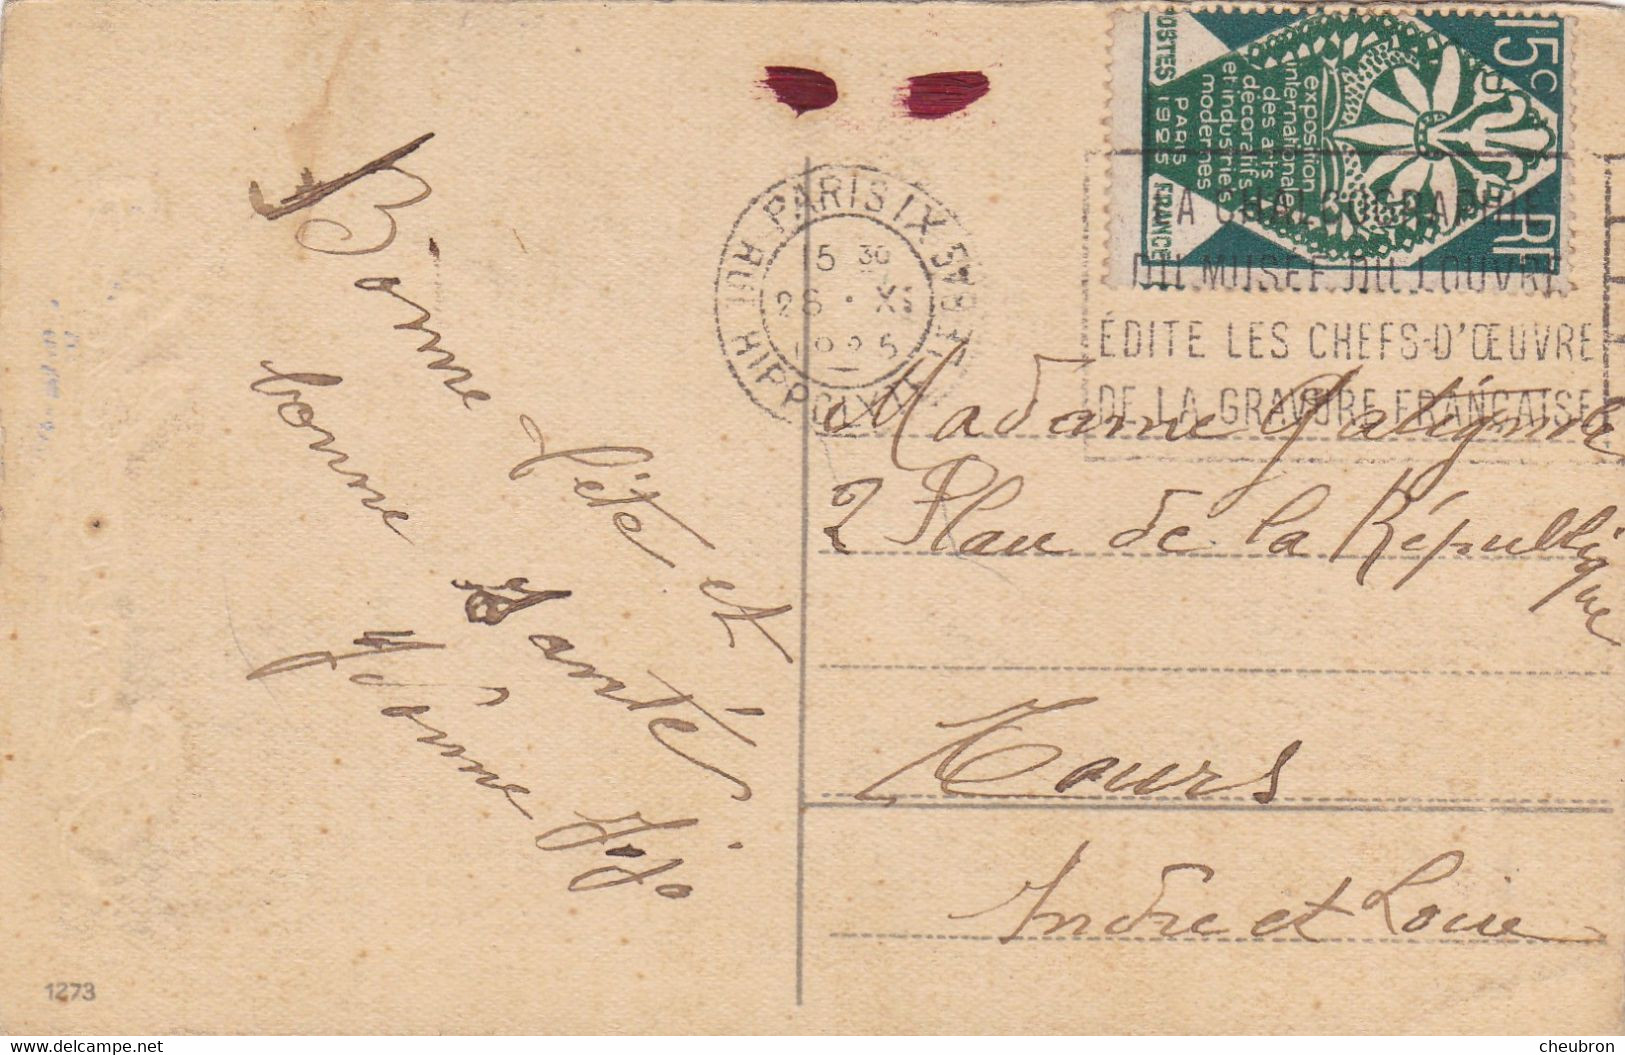 Bonne fête et
bonne santé
Yvonne Jijo
POSTES
PARIS
1925
FRANCE
15c
RF
exposition
internationale
des arts
décoratifs
et industriels
modernes
PARIS IX
RUE HIPPOLYTE LEBAS
5 30
28 · XI
1925
LA CHALCOGRAPHIE
DU MUSÉE DU LOUVRE
ÉDITE LES CHEFS-D'ŒUVRE
DE LA GRAVURE FRANÇAISE
Madame
2 Place de la République
Tours
Indre et Loire
1273
www.delcampe.net
cheubron